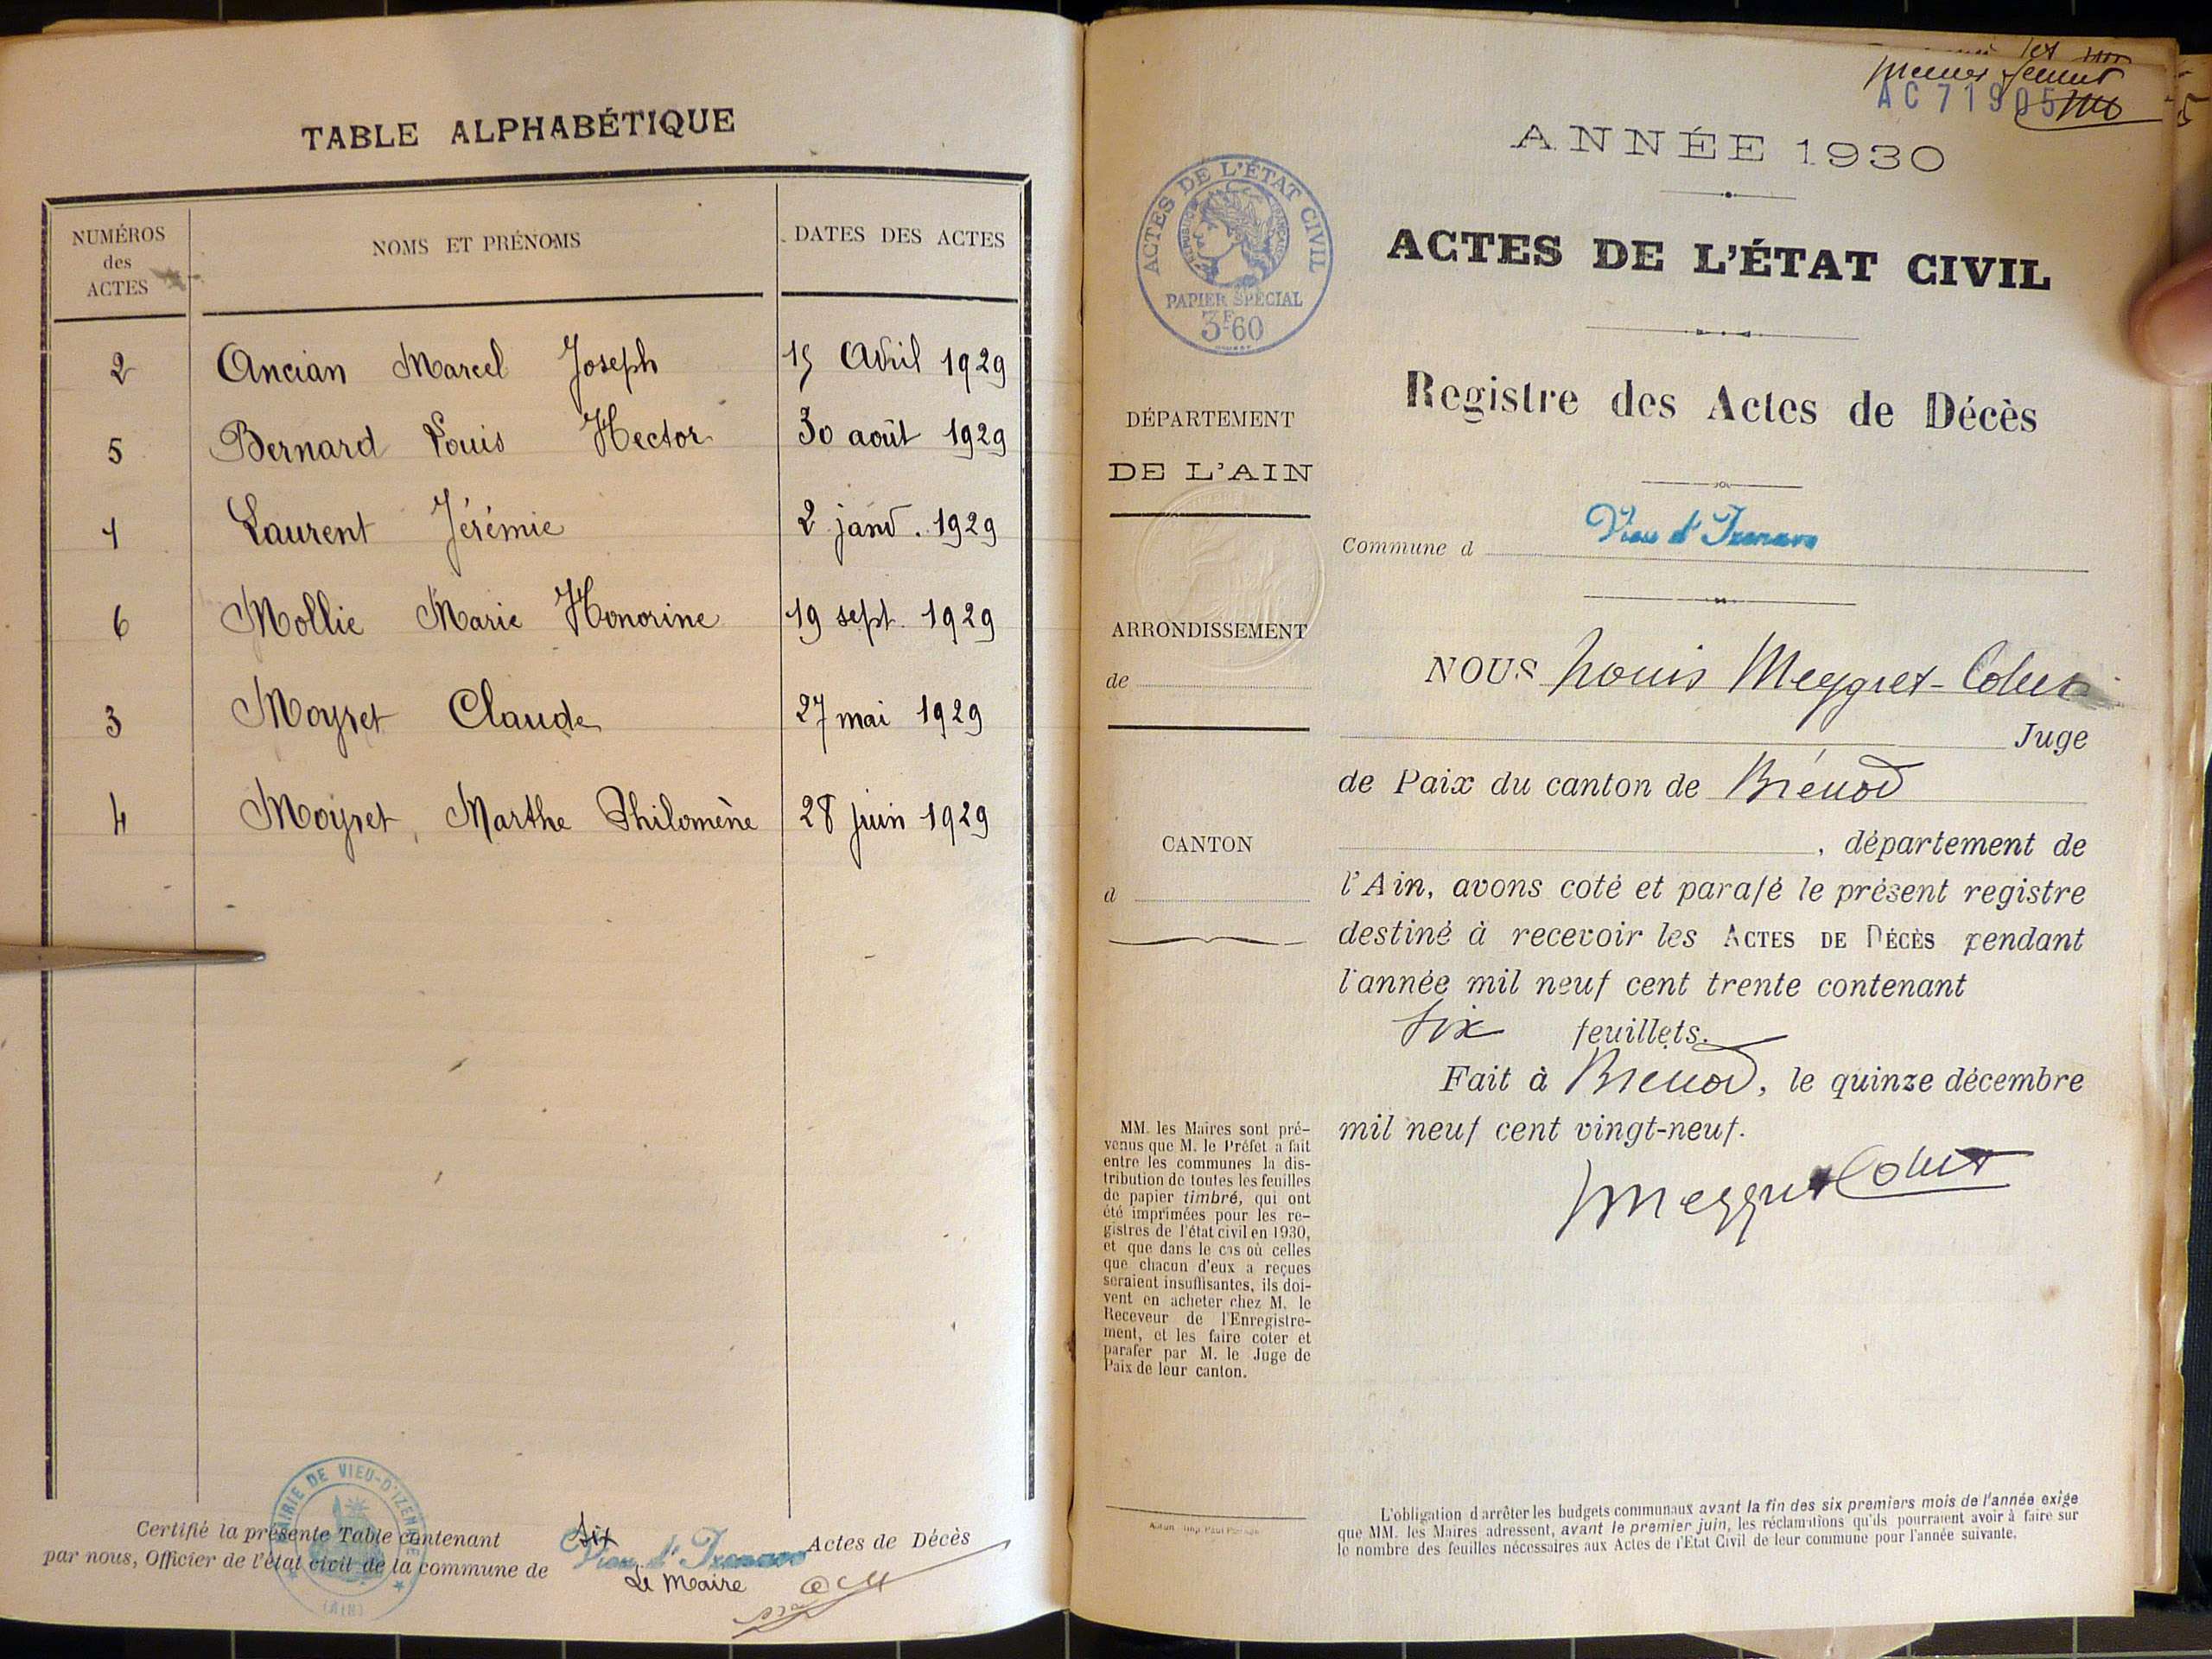 TABLE ALPHABÉTIQUE
NUMÉROS des ACTES NOMS ET PRÉNOMS DATES DES ACTES
2 Ancian Marcel Joseph 15 Avril 1929
5 Bernard Louis Hector 30 août 1929
1 Laurent Jérémie 2 janv. 1929
6 Mollie Marie Honorine 19 sept. 1929
3 Moyret Claude 27 mai 1929
4 Moyret, Marthe Philomène 28 juin 1929
MAIRIE DE VIEU-D'IZENAVE
(AIN)
Certifié la présente Table contenant six Actes de Décès
par nous, Officier de l'état civil de la commune de Vieu d'Izenave
Le Maire
premier feuillet
AC 71905
ANNÉE 1930
ACTES DE L'ÉTAT CIVIL
RÉPUBLIQUE FRANÇAISE
PAPIER SPÉCIAL
3F60
ACTES DE L'ÉTAT CIVIL
Registre des Actes de Décès
DÉPARTEMENT
DE L'AIN
Commune d Vieu d'Izenave
ARRONDISSEMENT
de
CANTON
d
NOUS Louis Meygret-Collet
Juge
de Paix du canton de Brénod
, département de
l'Ain, avons coté et parafé le présent registre
destiné à recevoir les ACTES DE DÉCÈS pendant
l'année mil neuf cent trente contenant
six feuillets.
Fait à Brénod, le quinze décembre
mil neuf cent vingt-neuf.
Meygret Collet
MM. les Maires sont pré-
venus que M. le Préfet a fait
entre les communes la dis-
tribution de toutes les feuilles
de papier timbré, qui ont
été imprimées pour les re-
gistres de l'état civil en 1930,
et que dans le cas où celles
que chacun d'eux a reçues
seraient insuffisantes, ils doi-
vent en acheter chez M. le
Receveur de l'Enregistre-
ment, et les faire coter et
parafer par M. le Juge de
Paix de leur canton.
L'obligation d'arrêter les budgets communaux avant la fin des six premiers mois de l'année exige
que MM. les Maires adressent, avant le premier juin, les réclamations qu'ils pourraient avoir à faire sur
le nombre des feuilles nécessaires aux Actes de l'Etat Civil de leur commune pour l'année suivante.